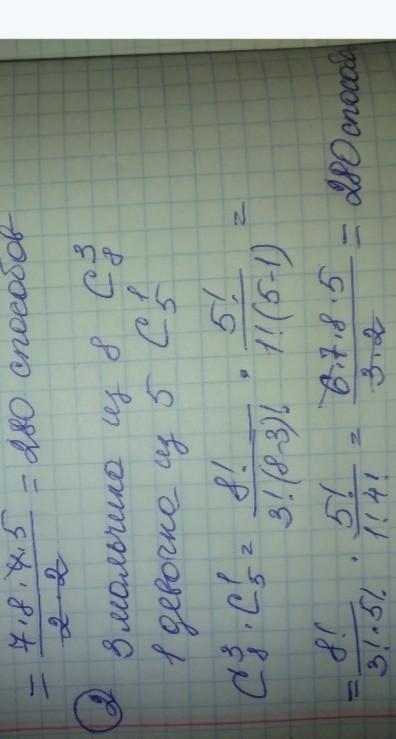 = 7·8·4·5 / 2·2 = 280 способов
② 3 мальчика из 8 C₈³
1 девочка из 5 C₅¹
C₈³ · C₅¹ = 8! / 3!(8-3)! · 5! / 1!(5-1) =
= 8! / 3!·5! · 5! / 1!4! = 6·7·8·5 / 3·2 = 280 способов